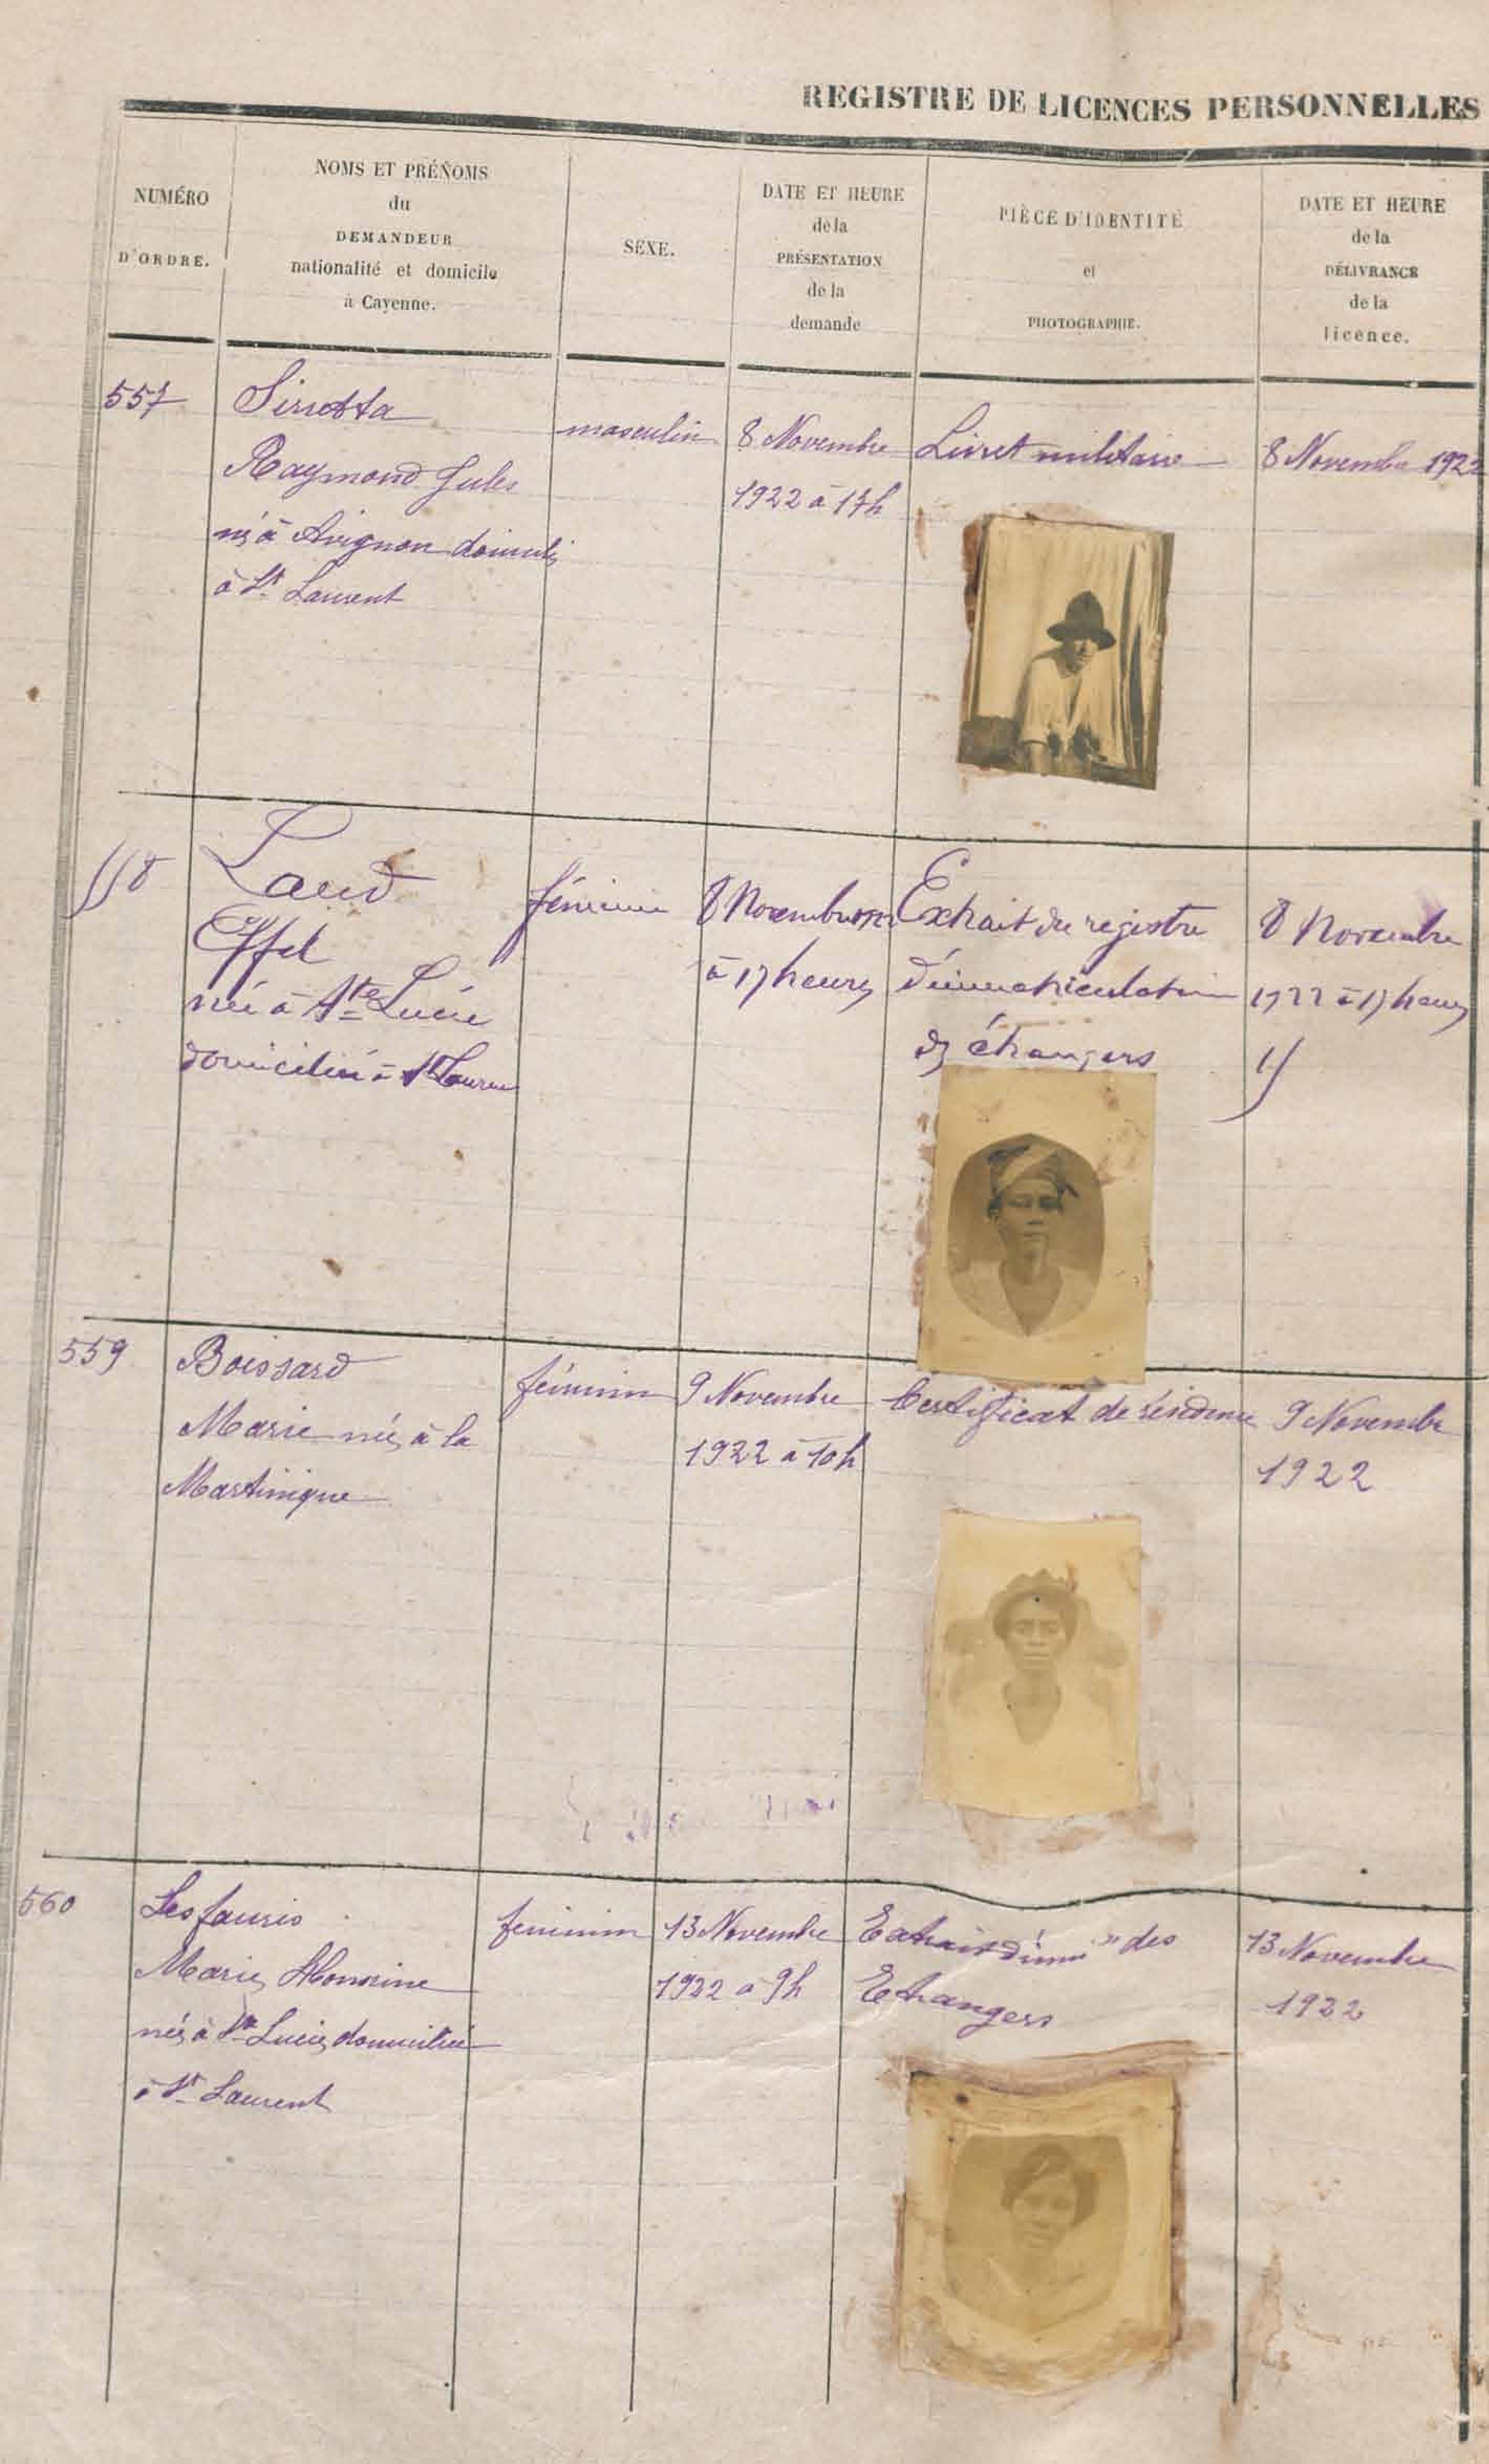 REGISTRE DE LICENCES PERSONNELLES
NUMÉRO
D'ORDRE.
NOMS ET PRÉNOMS
du
DEMANDEUR
nationalité et domicile
à Cayenne.
SEXE.
DATE ET HEURE
de la
PRÉSENTATION
de la
demande
PIÈCE D'IDENTITÉ
et
PHOTOGRAPHIE.
DATE ET HEURE
de la
DÉLIVRANCE
de la
licence.
557
Raymond Jules
né à Avignon domicilié
à St Laurent
masculin
8 Novembre
1922 à 17h
Livret militaire
8 Novembre 1922
558
Laud
Effel
née à Ste Lucie
domiciliée à St Laurent
féminin
8 Novembre 1922
à 17 heures
Extrait du registre
d'immatriculation
des étrangers
8 Novembre
1922 à 17 heures
559
Boissard
Marie née à la
Martinique
féminin
9 Novembre
1922 à 10h
Certificat de résidence
9 Novembre
1922
560
Marie Honorine
née à Ste Lucie domiciliée
à St Laurent
feminin
13 Novembre
1922 à 9h
Extrait d'imm on des
Etrangers
13 Novembre
1922